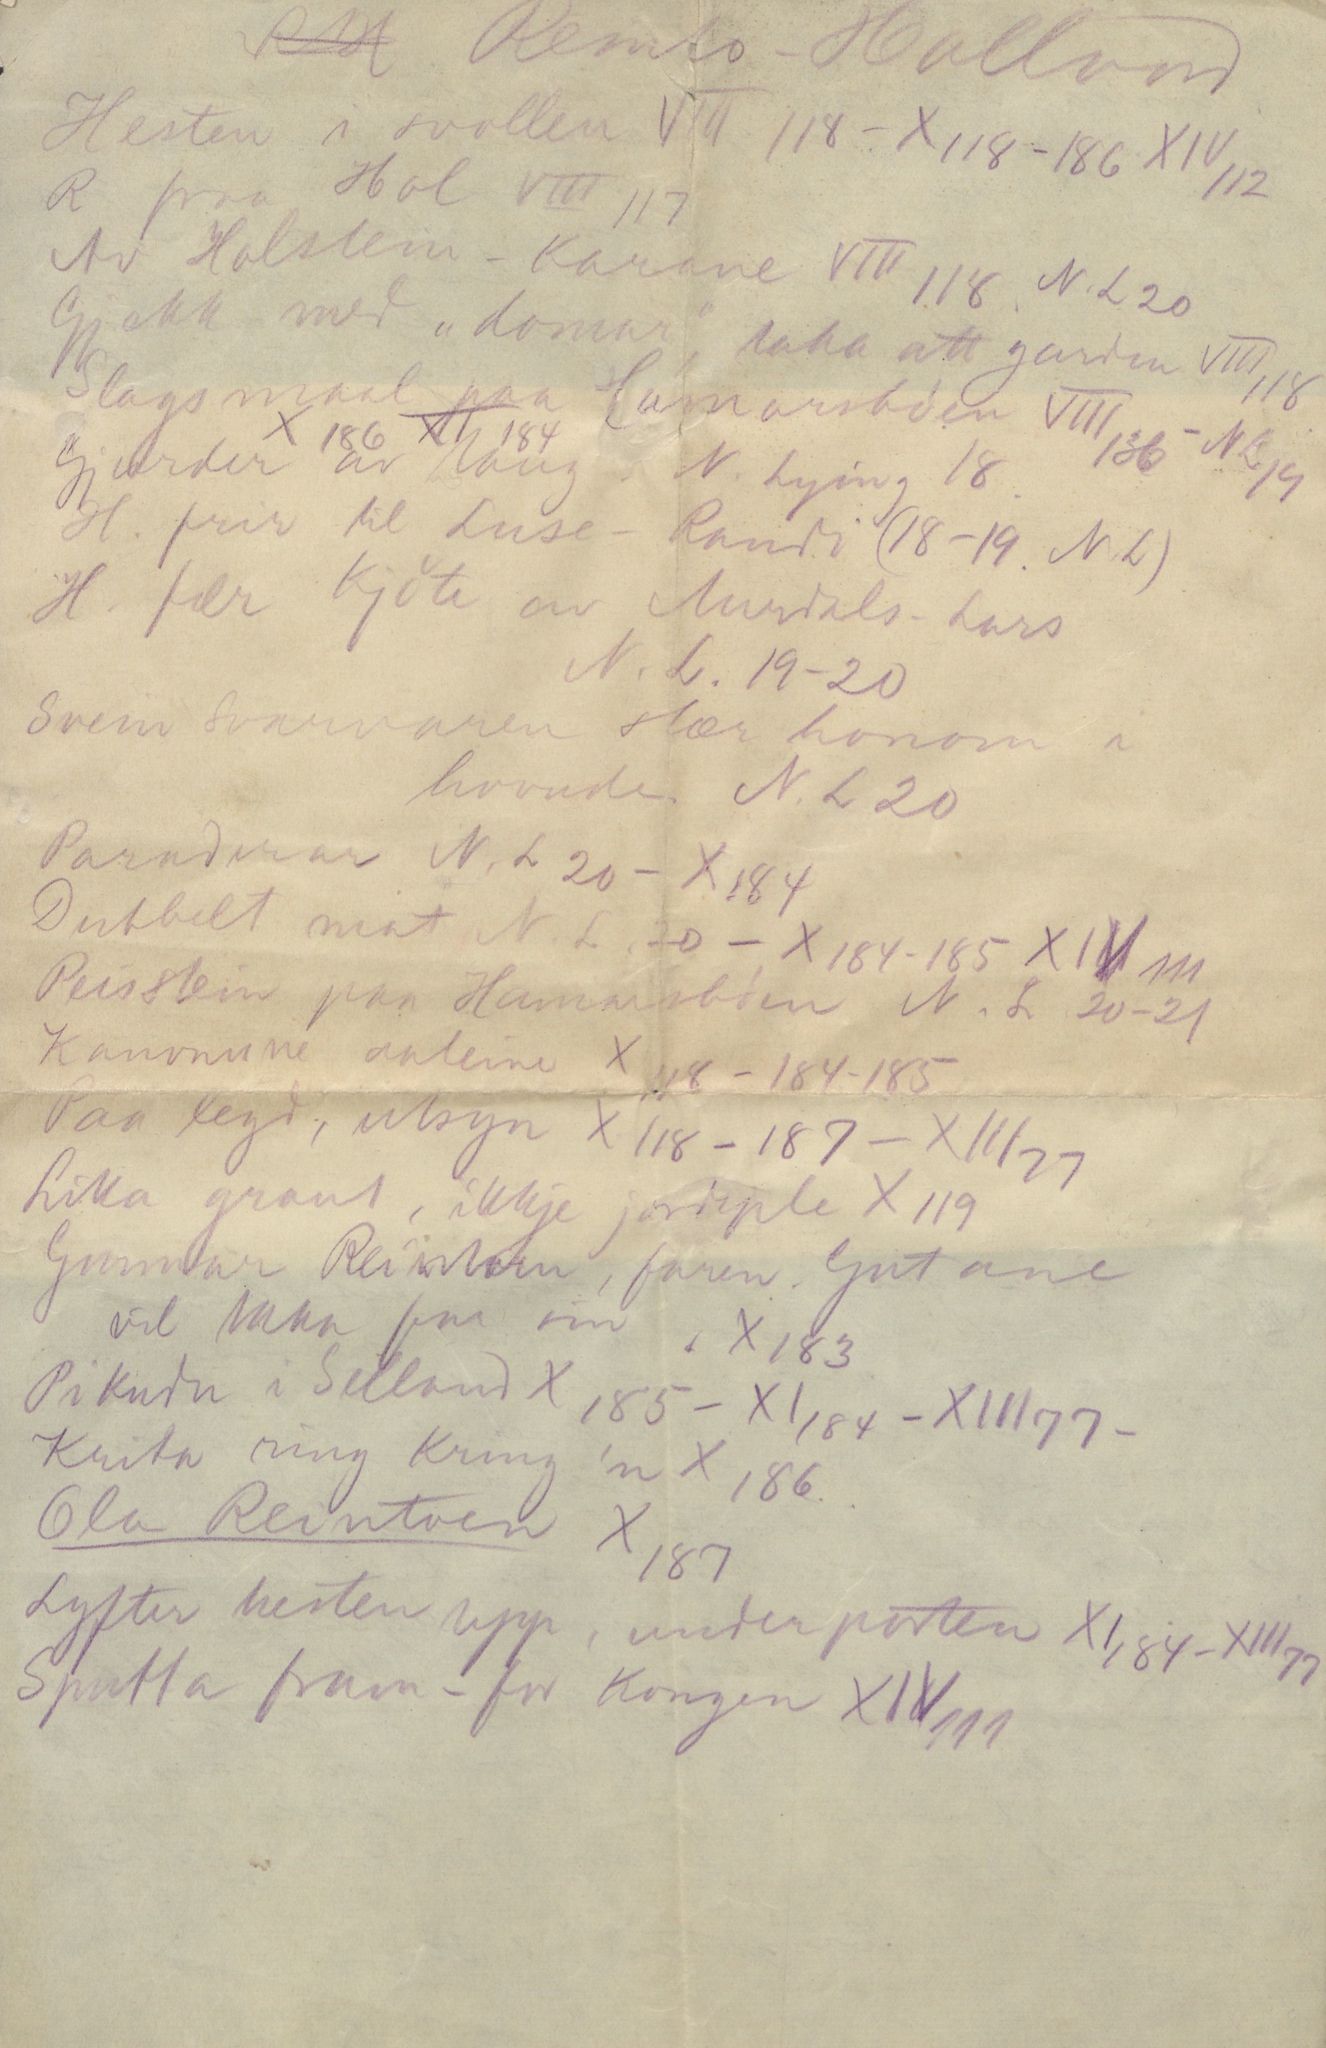 Reinto-Hallvord
Hesten i svollen VIII 118 - X 118 - 186 XIV 112
R paa Hol VIII 117
Av Holstein-Karane VIII 118. N. L 20
Gjekk med "Lomar", taka att garden VIII 118
Slagsmaal paa Hamarsböen VIII 136 - N L 19
X 186 XII 184
Gjerder av haug. N. Lying 18.
H. frir til Luse-Randi (18-19. N. L)
H. fær Kjöte av Aurdals-Lars
N. L. 19-20
Svein Svarvaren slær honom i
hovude. N. L 20
Paraderar N. L 20 - X 184
Dubbelt mat N. L. 20 - X 184-185 XIV 111
Peisstein paa Hamarsböen N. L 20-21
Kanonune aaleine X 118 - 184-185
Paa legd, utsyn X 118 - 187 - XIII 77
Lika graut, ikkje jordeple X 119
Gunnar Reinton, faren. Gutane
vil taka paa 'om. X 183
Pikudn i Selland X 185 - XI 184 - XIII 77 -
Krita ring kring 'n X 186.
Ola Reintoen X 187
Lyfter hesten upp, under porten XI 184 - XIII 77
Sputta fram-for Kongen XIV 111